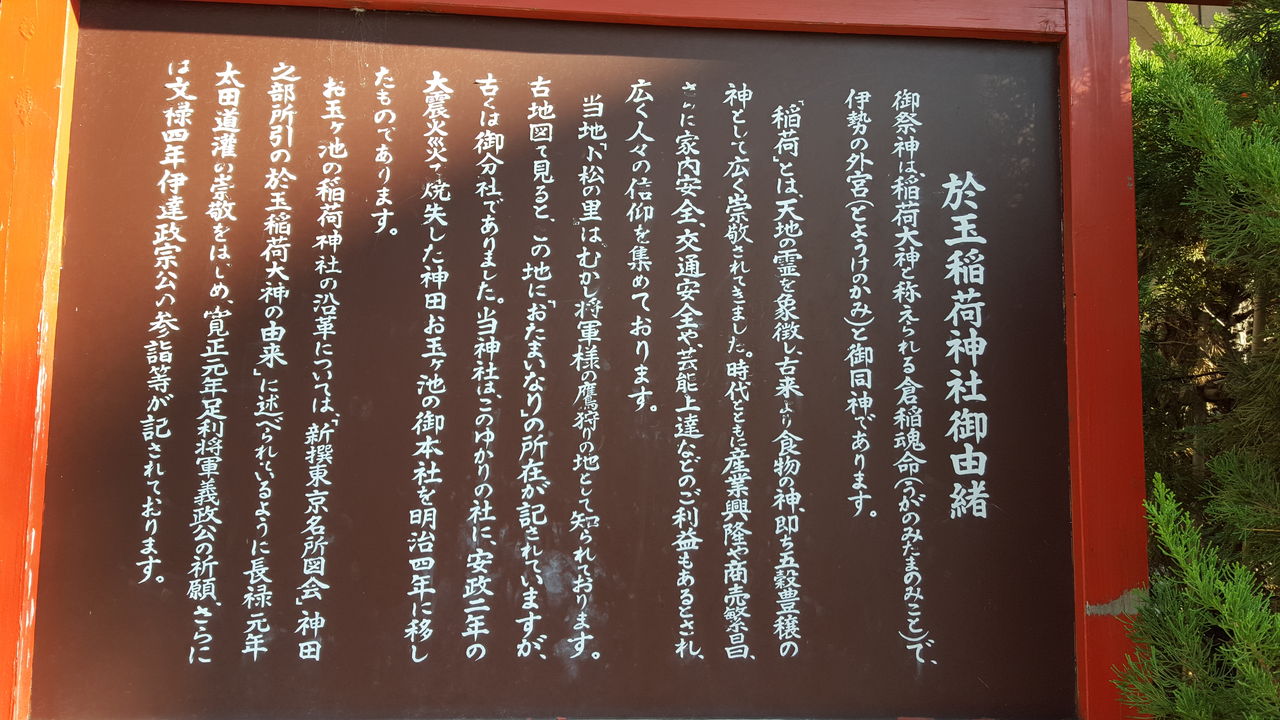 於玉稲荷神社御由緒
御祭神は、稲荷大神と称えられる倉稲魂命(うがのみたまのみこと)で、
伊勢の外宮(とようけのかみ)と御同神であります。
「稲荷」とは、天地の霊を象徴し、古来より食物の神、即ち五穀豊穣の
神として広く崇敬されてきました。時代とともに産業興隆や商売繁昌、
さらに家内安全、交通安全や、芸能上達などのご利益もあるとされ、
広く人々の信仰を集めております。
当地「小松の里」はむかし将軍様の鷹狩りの地として知られております。
古地図で見ると、この地に「おたまいなり」の所在が記されていますが、
古くは御分社でありました。当神社は、このゆかりの社に、安政二年の
大震火災で焼失した神田お玉ヶ池の御本社を明治四年に移し
たものであります。
お玉ヶ池の稲荷神社の沿革については、「新撰東京名所図会」神田
之部所引の「於玉稲荷大神の由来」に述べられているように長禄元年
太田道灌の崇敬をはじめ、寛正元年足利将軍義政公の祈願、さらに
は文禄四年伊達政宗公の参詣等が記されております。